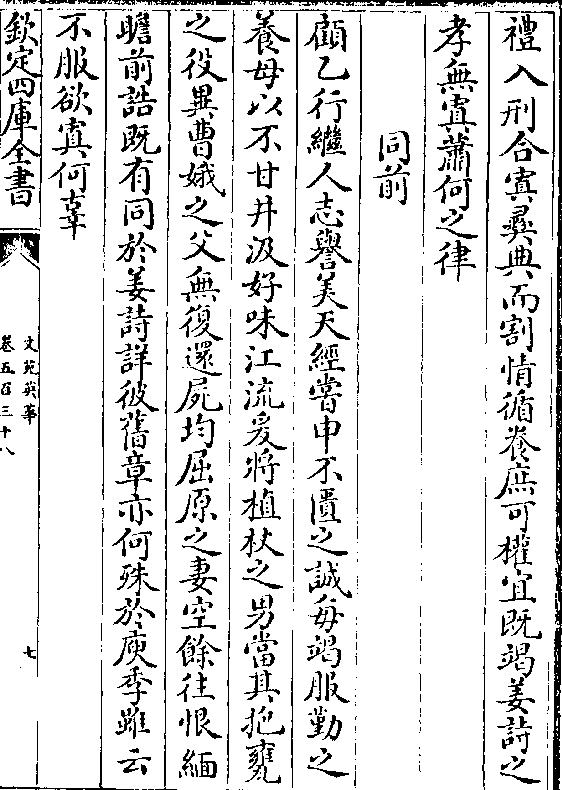 禮入刑合寘彞典而割情循養庶可權宜既竭姜詩之
孝無寘蕭何之律
同前
顧乙行繼人志譽美天經嘗申不匱之誠每竭服勤之
養母以不甘井汲好味江流爰將植杖之男當其抱甕
之役異曹娥之父無復還屍均屈原之妻空餘往恨緬
瞻前誥既有同於姜詩詳彼舊章亦何殊於庾季雖云
不服欲寘何辜
欽定四庫全書
文苑英華
卷五百三十八
七